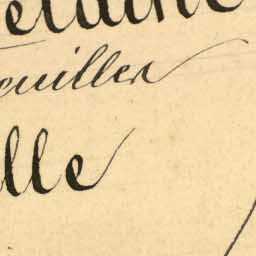 elaine
ouiller
lle